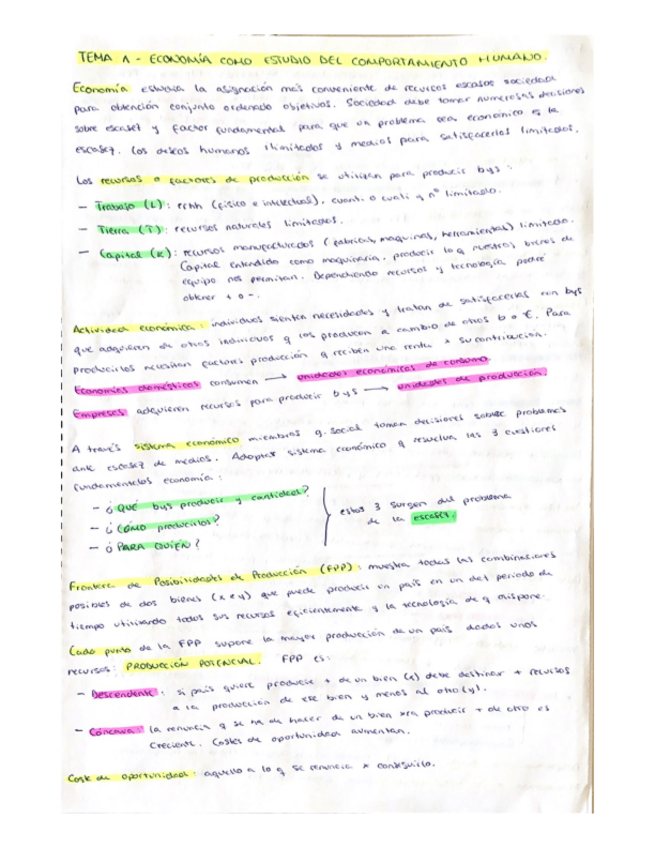 TEMA 1 - ECONOMÍA COMO ESTUDIO DEL COMPORTAMIENTO HUMANO.
Economía estudia la asignación más conveniente de recursos escasos sociedad
para obtención conjunto ordenado objetivos. Sociedad debe tomar numerosas decisiones
sobre escasez y factor fundamental para que un problema sea económico es la
escasez. Los deseos humanos ilimitados y medios para satisfacerlos limitados.
Los recursos o factores de producción se utilizan para producir bys :
- Trabajo (L) : rrhh (físico e intelectual), cuant. o cuali y nº limitado.
- Tierra (T) : recursos naturales limitados.
- Capital (K) : recursos manufacturados (fábricas, maquinas, herramientas) limitado.
Capital entendido como maquinaria, producir lo q nuestros bienes de
equipo nos permitan. Dependiendo recursos y tecnología podré
obtener + o -.
Actividad económica : individuos sienten necesidades y tratan de satisfacerlas con bys
que adquieren de otros individuos q los producen a cambio de otros b o €. Para
producirlos necesitan factores producción q reciben una renta x su contribución.
Economías domésticas consumen → unidades económicas de consumo
Empresas adquieren recursos para producir bys → unidades de producción.
A través sistema económico miembros q. social toman decisiones sobre problemas
ante escasez de medios. Adoptar sistema económico q resuelva las 3 cuestiones
fundamentales economía :
- ¿QUÉ bys producir y cantidad?
- ¿CÓMO producirlos?
- ¿PARA QUIÉN?
estas 3 surgen del problema
de la escasez.
Frontera de Posibilidades de Producción (FPP) : muestra todas las combinaciones
posibles de dos bienes (x e y) que puede producir un país en un det periodo de
tiempo utilizando todos sus recursos eficientemente y la tecnología de q dispone.
Cada punto de la FPP supone la mayor producción de un país dados unos
recursos: PRODUCCIÓN POTENCIAL. FPP es:
- Descendente : si país quiere producir + de un bien (x) debe destinar + recursos
a la producción de ese bien y menos al otro (y).
- Cóncava : la renuncia q se ha de hacer de un bien xra producir + de otro es
creciente. Costes de oportunidad aumentan.
Coste de oportunidad : aquello a lo q se renuncia x conseguirlo.